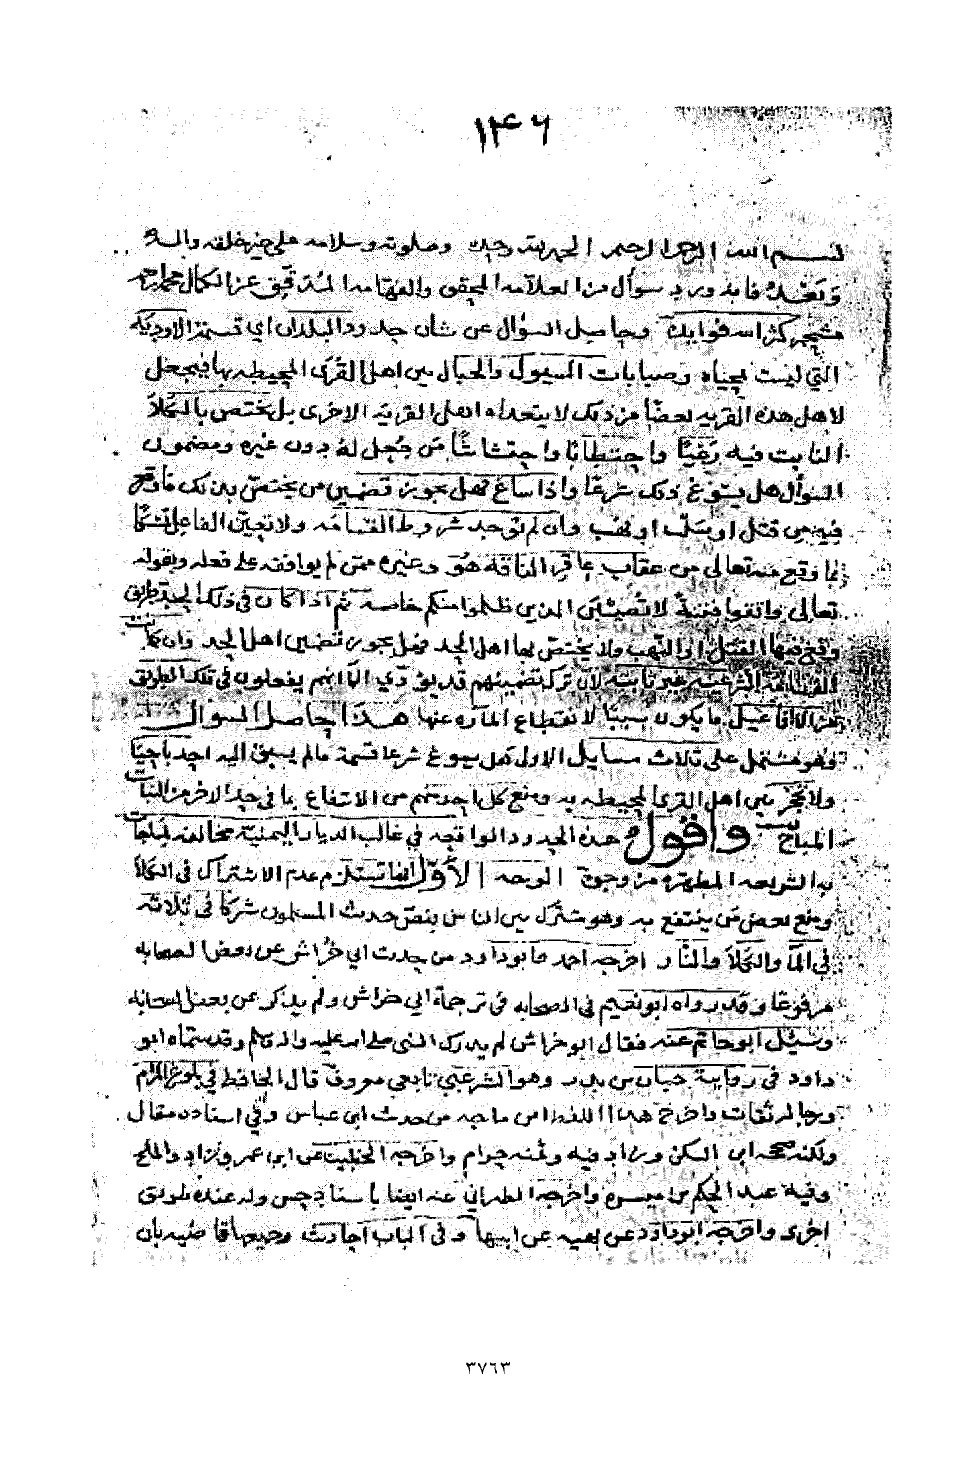 ١٤٦
بسم الله الرحمن الرحيم الحمد لله وحده وصلوته وسلامه على خير خلقه واله
وبعد فانه ورد سؤال من العلامه المحقق والفهامه المدقق عز الكمال محمد بن احمد
مشحم كثر الله فوايده وحاصل السؤال عن شان حدود البلدان اي قسمة الاودية
التي ليست بمحياه وصبابات السيول والجبال بين اهل القرى المحيطه بها فيجعل
لاهل هذه القريه بعضا من ذلك لا يتعداه اهل القريه الاخرى بل يختص بالكلأ
النابت فيه رعيا واحتطابا واحتشاشا من جعل له دون غيره ومضمون
السؤال هل يسوغ ذلك شرعا واذا ساغ فهل يجوز تضمين من يختص بذلك ما وقع
فيه من قتل او سلب او نهب وان لم توجد شروط القسامه ولا تعين الفاعل
بما وقع منه تعالى من عقاب عاقر الناقة هو وغيره ممن لم يوافقه على فعله وبقوله
تعالى واتقوا فتنة لا تصيبن الذين ظلموا منكم خاصة ثم اذا كان في ذلك الحد طريق
وقع فيها القتل او النهب ولا يختص بها اهل الحد فهل يجوز تضمين اهل الحد وان كانت
القسامة الشرعيه غير ثابته لان ترك تضمينهم قد يؤدي الى انهم يفعلون في تلك الطريق
من الافاعيل ما يكون سببا لانقطاع الماره عنها هذا حاصل السؤال
وهو مشتمل على ثلاث مسايل الاولى هل يسوغ شرعا قسمة مالم يسبق اليه احد باحيا
ولا تحجر بين اهل القرى المحيطه به ومنع كل احد منهم من الانتفاع بما في حد الاخر من النبات
المباح واقول هذه الحدود الواقعه في غالب الديار اليمنية مخالفة لما جات
به الشريعه المطهره من وجوه الوجه الأول انها تستلزم عدم الاشتراك في الكلأ
ومنع بعض من ينتفع به وهو مشترك بين الناس بنص حديث المسلمون شركا في ثلاثة
في الماء والكلأ والنار اخرجه احمد وابو داود من حديث ابي خراش عن بعض الصحابه
مرفوعا وقد رواه ابو نعيم في الصحابه في ترجمة ابي خراش ولم يذكر عن بعض الصحابه
وسئل ابو حاتم عنه فقال ابو خراش لم يدرك النبي صلى الله عليه واله وسلم وقد سماه ابو
داود في روايته حبان بن يزيد وهو الشرعبي تابعي معروف قال الحافظ في بلوغ المرام
ورجاله ثقات واخرج هذا اللفظ ابن ماجه من حديث ابن عباس وفي اسناده مقال
ولكنه صححه ابن السكن وزاد فيه وثمنه حرام واخرجه الخطيب عن ابن عمر وزاد والملح
وفيه عبد الحكم بن ميسره واخرجه الطبراني عنه ايضا باسناد حسن وله عنده طريق
اخرى واخرجه ابو داود عن بهيسه عن ابيها وفي الباب احاديث وجميعها قاضيه بان
٣٧٦٣